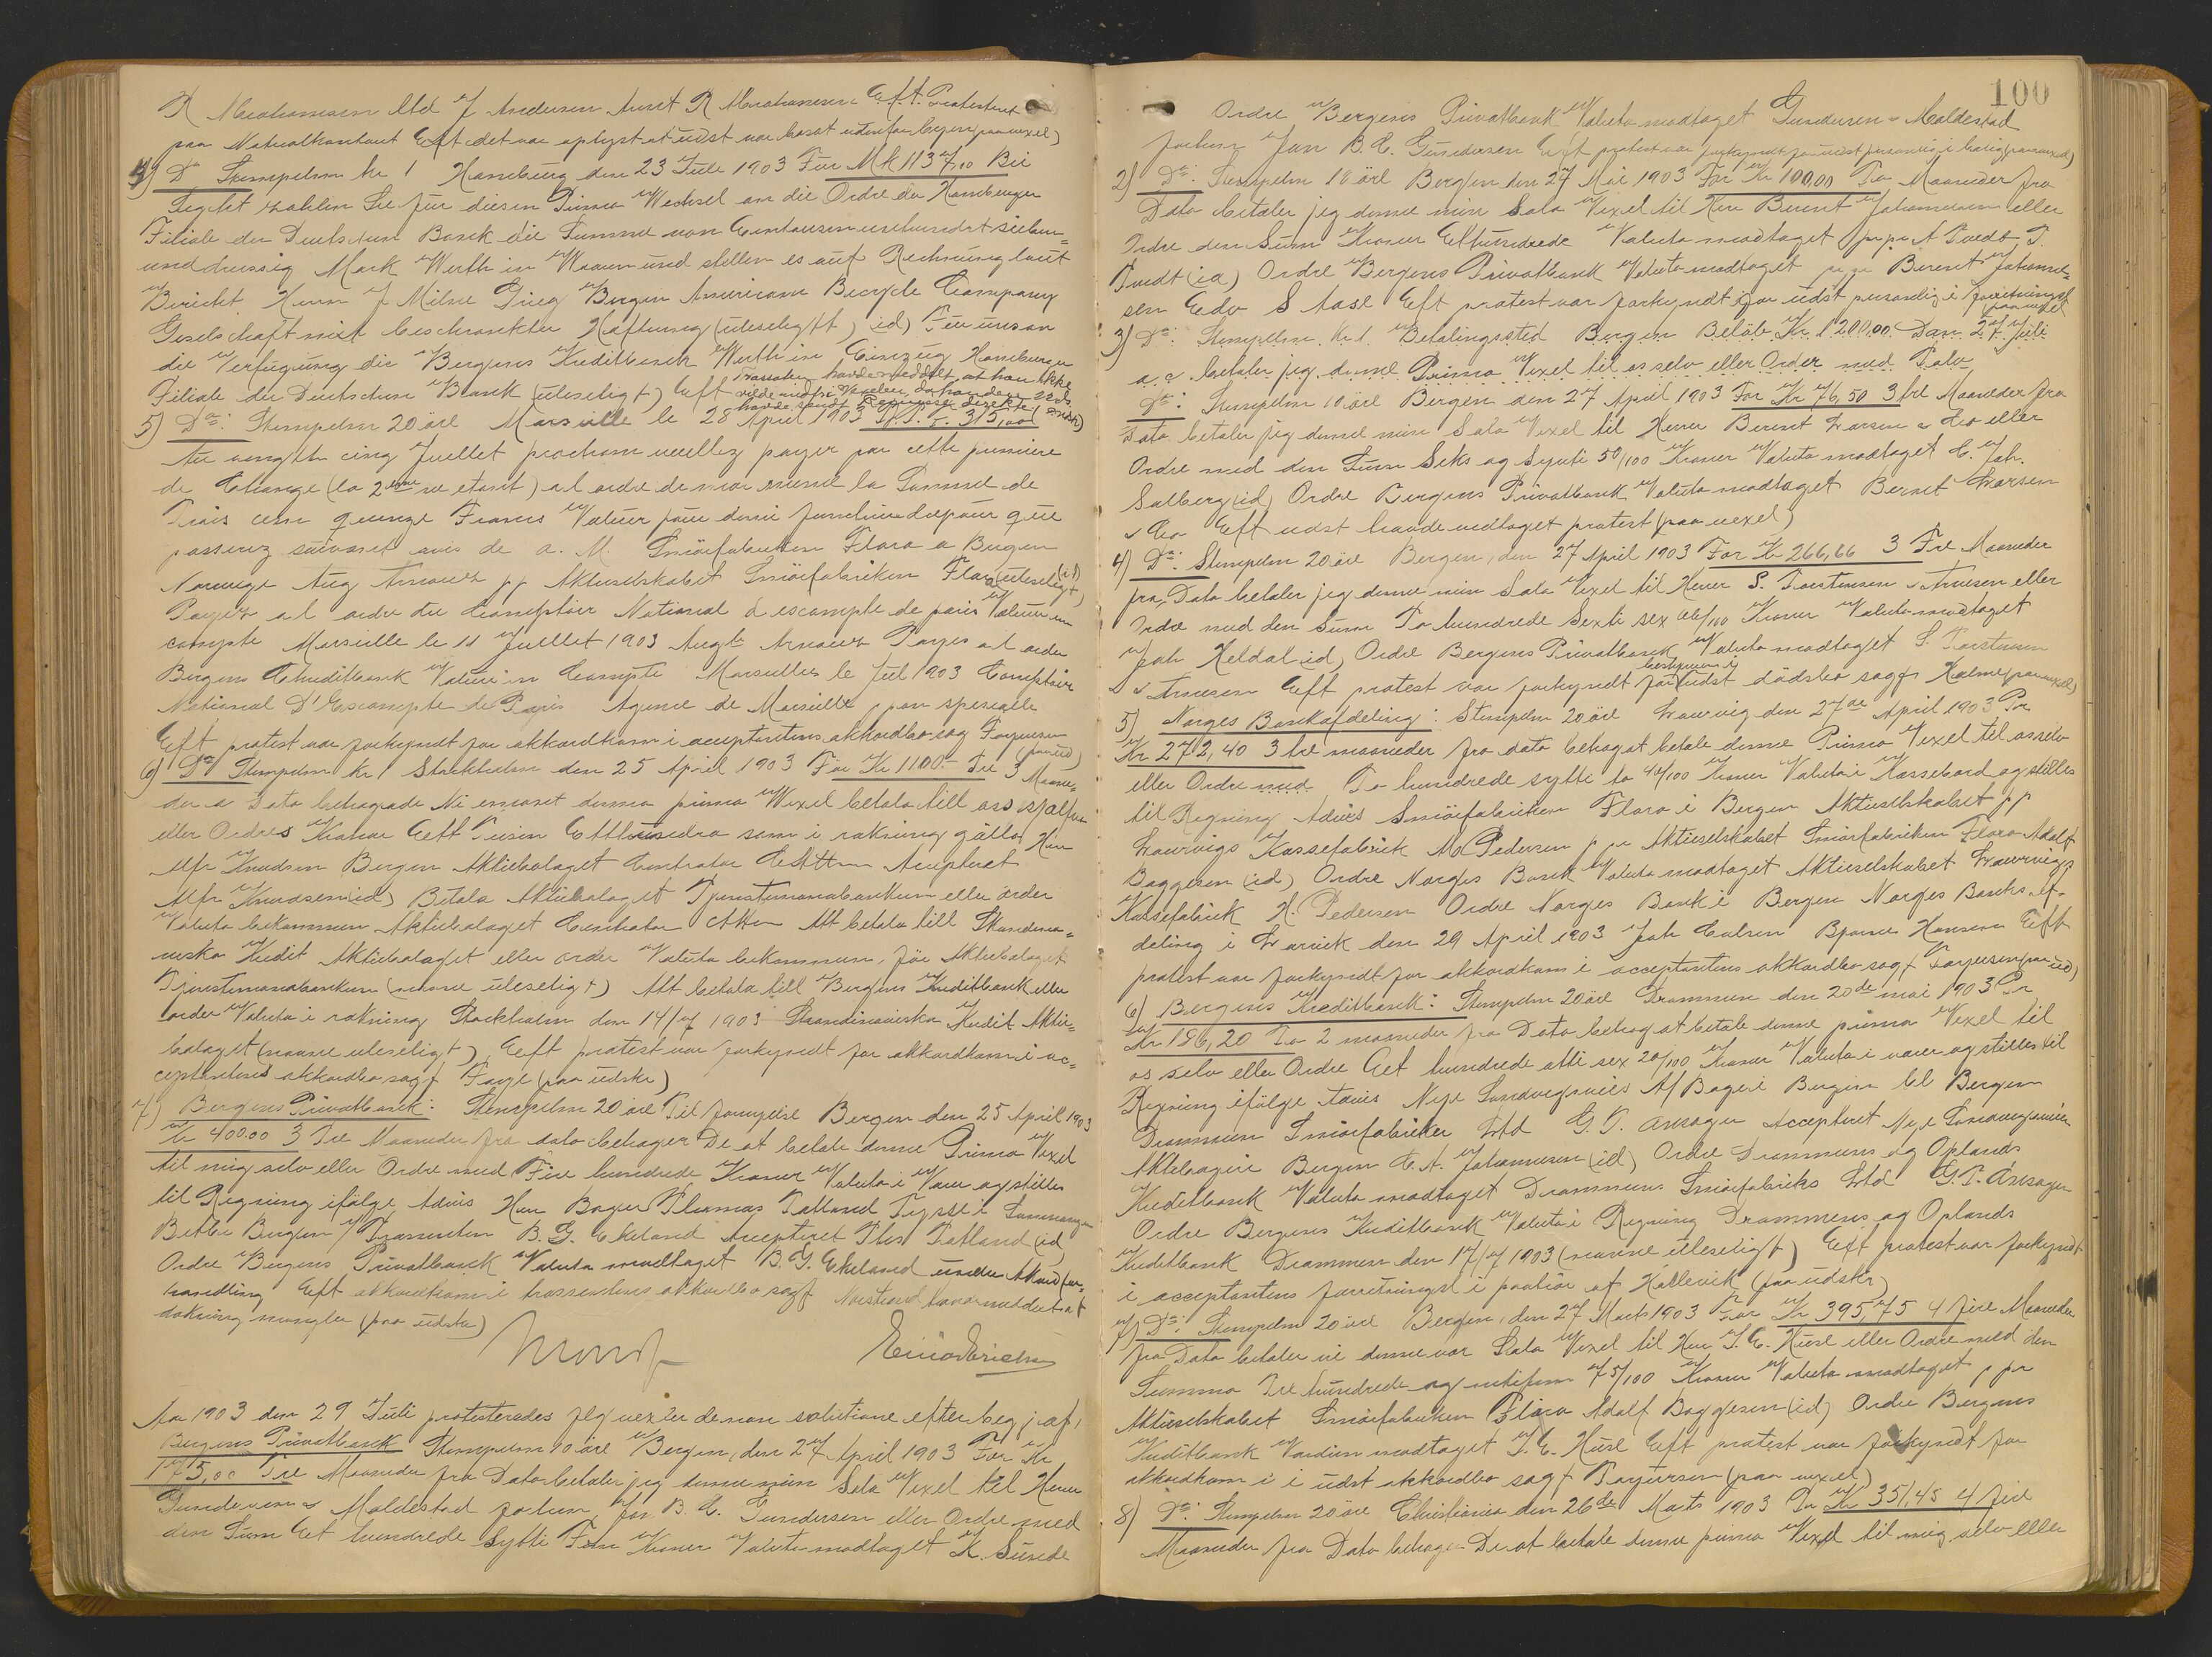 R Abrahamsen Ltd J Andersen Aunt R Abrahamsen Eft. Protesteret
paa Notarialkontoret Eft det var oplyst at udst var bosat udenfor byen (paa vexel)
4) Do Stempelm Kr 1 Hamburg den 23 Juli 1903 Für Mk 1137,10 Bei
Sicht zahlen Sie für diesen Prima Wechsel an die Ordre der Hamburger
Filiale der Deutschen Bank die Summe von Eintausendeinhundertsieben-
unddreissig Mark Werth in Waaren und stellen es auf Rechnung laut
Bericht Herrn J Milne Grieg Bergen American Becycle Company
Geselschaft mit beschrankter Haftung (uleseligt) id) Für uns an
die Verfügung der Bergens Kreditbank Werth in Einzug Hamburger
Filiale der Deutschen Bank (uleseligt) Eft Trassaten havde meddelt, at han ikke
vilde indfri Vexelen, da han den 22ds
havde sendt Remisse direkte (udskr)
5) Do: Stempelm 20 öre Marseille le 28 April 1903 315,00
Au vingth cinq Juellet prochain veuillez payer par cette premiere
de Change (la 2eme ne etant) a l ordre de moi meme la Somme de
Trois cen quenze Francs Valeur
passerez suivant avis de a. M. Smörfabriken Flora a Bergen
Norwege Aug Arnaux pp Aktieselskabet Smörfabriken Flora (uleseligt) (id)
Payez a l ordre du Comptoir National d escompte de paris Valeur en
compte Marseille le 11 Juellet 1903 Augte Arnaux Payes a l ordre
Bergens Creditbank Valeur in Compte Marseilles le Juil 1903 Comptoir
National D'Escompte de Paris Agence de Marseille, pon speseaelle
Eft protest var forkyndt for akkordkom i acceptantens akkordbo sagf Forgersen (paa ud)
6) Do Stempelm Kr 1 Stockholm den 25 April 1903 För Kr 1100- Tre 3 Maane-
der a Dato behagade Ni emoset denna prima Wexel betala till oss sjalfva
eller Ordres Kronor Eett Tusen Etthundra som i rakning gälla Herr
Alfr Knudsen Bergen Aktiebolaget Centrator C Atter Accepteret
Alfr Knudsen (id) Betala Aktiebolaget Tjenstemannabanken eller order
Valuta bekommen Aktiebolaget Centrator Atter Att betala till Skandina-
viska Kredit Aktiebolaget eller order Valuta bekommen, för Aktiebolaget
Tjenstemannabanken (navne uleseligt) Att betala till Bergens Kreditbank eller
order Valuta i rakning Stockholm den 14/7 1903 Skandinaviska Kredit Aktie-
bolaget (navne uleseligt) Eeft protest var forkyndt for akkordkom i ac-
ceptantens akkordbo sagf Faye (paa udskr)
7) Bergens Privatbank: Stempelm 20 öre Til fornyelse Bergen den 25 April 1903
Kr 400.00 3 Tre Maaneder fra dato behager De at betale denne Prima Vexel
til mig selv eller Ordre med Fire hundrede Kroner Valuta i Varer og stilles
til Regning ifölge Advis Herr Bager Thomas Tatland Tysse i Samnanger
Betb i Bergen / Trassenten B. G. Ekeland Accepteret Ths Tatland (id)
Ordre Bergens Privatbank Valuta modtaget B. G. Ekeland under Akkord for-
handling Eft akkordkom i trassentens akkordbo sagf Norstrand havde meddelt at
dækning mangler (paa udskr)
Aar 1903 den 29 Juli protesteredes flg vexler de non solutione efter beg. af
Bergens Privatbank Stempelm 10 öre Bergen, den 27 April 1903 For Kr
175,00 Tre Maaneder fra Dato betaler jeg denne min Sola Vexel til Herrer
Gundersen & Maldestad Jan B. C. Gundersen eller Ordre med
den Sum Et hundrede Sytti Fem Kroner Valuta modtaget K. Sunde
100
Ordre Bergens Privatbank Valuta modtaget Gundersen & Maldestad
Jan B. C. Gundersen Eft protest var forkyndt for udst personlig i bolig (paa vexel)
2) Do: Stempelm 10 öre Bergen den 27 Mai 1903 For Kr 100,00 To Maaneder fra
Dato betaler jeg denne min Sola Vexel til Herr Berent Johannesen eller
Ordre den Sum Kroner Ethundrede Valuta modtaget pr pr A Tvedt T.
Tvedt (id) Ordre Bergens Privatbank Valuta modtaget pr pr Berent Johannes-
sen Edv S Aase Eft protest var forkyndt for udst personlig i forretningsl
paa vexel
3) Do: Stempelm Kr 1. Betalingssted Bergen Beløb Kr 1200,00 Den 27 Juli
a. c. betaler jeg denne Prima Vexel til os selv eller Order med Tolv
Do: Stempelm 10 öre Bergen den 27 April 1903 For Kr 76,50 3 tre Maaneder fra
Dato betaler jeg denne min Sola Vexel til Herrer Berent Larsen & Co eller
Ordre med den Sum Seks og Sytti 50/100 Kroner Valuta modtaget C. Joh.
Solberg (id) Ordre Bergens Privatbank Valuta modtaget Bernt Larsen
& Co Eft udst havde vedtaget protest (paa vexel)
4) Do: Stempelm 20 öre Bergen, den 27 April 1903 For Kr 266,66 3 Tre Maaneder
fra Dato betaler jeg denne min Sola Vexel til Herrer S. Torstensen & Arnesen eller
Ordre med den Sum To hundrede Sexti sex 66/100 Kroner Valuta modtaget
Joh Heldal id) Ordre Bergens Privatbank Valuta modtaget S. Torstensen
& Arnesen Eft protest var forkyndt for bestyreren i udst dödsbo sagf Kalme (paa vexel)
5) Norges Bankafdeling: Stempelm 20 öre Laurvig den 27de April 1903 Pr
Kr 272,40 3 tre maaneder fra dato behagat betale denne Prima Vexel til osselv
eller Ordre med To hundrede sytti to 40/100 Kroner Valuta i Kassebord og stilles
til Regning Advis Smörfabriken Flora i Bergen Aktieselskabet pp
Laurvigs Kassefabrik M Pedersen p pr Aktieselskabet Smörfabriken Flora Adolf
Baggesen (id) Ordre Norges Bank Valuta modtaget Aktieselskabet Laurvigs
Kassefabrik H. Pedersen Ordre Norges Bank i Bergen Norges Banks Af-
deling i Larvik den 29 April 1903 Joh Carlsen Bjarne Hansen Eft
protest var forkyndt for akkordkom i acceptantens akkordbo sagf Forgersen (paa ud)
6) Bergens Kreditbank: Stempelm 20 öre Drammen den 20de mai 1903 Pr
Kr 186,20 To 2 maaneder fra Dato behag at betale denne prima Vexel til
os selv eller Ordre Eet hundrede otti sex 20/100 Kroner Valuta i varer og stilles til
Regning ifölge Advis Nye Sandvegsveiens A/ Bageri Bergen bl Bergen
Drammen Smörfabriker Ltd G. T. Ansager Accepteret Nye Sandvegsveien
Aktiebageri Bergen C. A. Johannesen (id) Ordre Drammens og Oplands
Kreditbank Valuta modtaget Drammens Smörfabriks Ltd G. T. Ansager
Ordre Bergens Kreditbank Valuta i Regning Drammens og Oplands
Kreditbank Drammen den 17/7 1903 (navne uleseligt) Eft protest var forkyndt
i acceptantens forretningsl i paahör af Hallervik (paa udskr)
7) Do: Stempelm 20 öre Bergen, den 27 Marts 1903 For Kr 395,75 4 fire Maaneder
fra Dato betaler vi denne vor Sola Vexel til Herr J. E. Huse eller Ordre med den
Summa Tre hundrede og nitifem 75/100 Kroner Valuta modtaget, p pr
Aktieselskabet Smörfabriken Flora Adolf Baggesen (id) Ordre Bergens
Kreditbank Værdien modtaget J. E. Huse Eft protest var forkyndt for
akkordkom i i udst akkordbo sagf Forgersen (paa vexel)
8) Do: Stempelm 20 öre Christiania den 26de Marts 1903 Pr Kr 351,45 4 fire
Maaneder fra Dato behager De at betale denne prima Vexel til mig selv eller